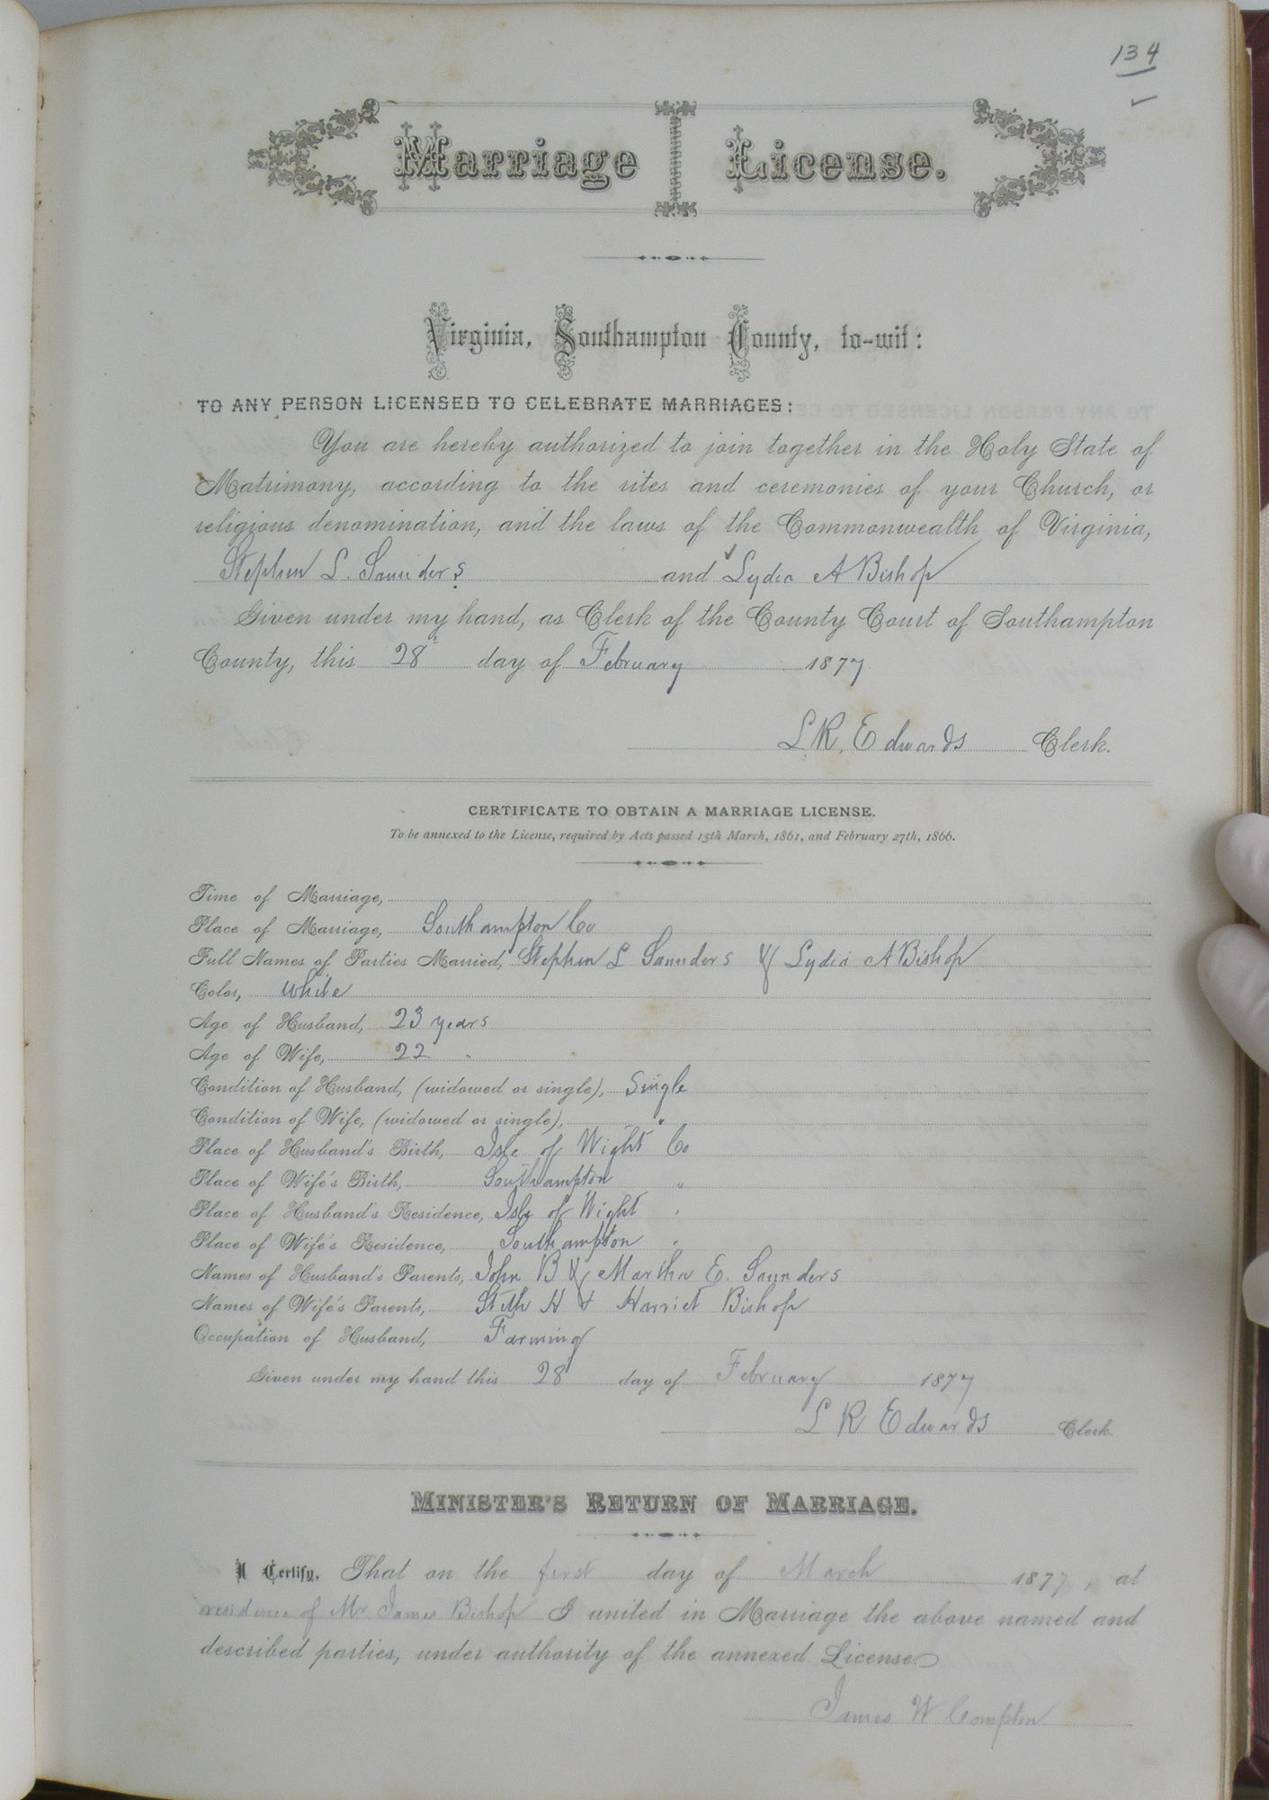 134
Marriage License.
Virginia, Southampton County, to-wit:
TO ANY PERSON LICENSED TO CELEBRATE MARRIAGES:
You are hereby authorized to join together in the Holy State of
Matrimony, according to the rites and ceremonies of your Church, or
religious denomination, and the laws of the Commonwealth of Virginia,
Stephen L. Saunders and Lydia A Bishop
Given under my hand, as Clerk of the County Court of Southampton
County, this 28 day of February 1877
L. R. Edwards Clerk.
CERTIFICATE TO OBTAIN A MARRIAGE LICENSE.
To be annexed to the License, required by Acts passed 15th March, 1861, and February 27th, 1866.
Time of Marriage,
Place of Marriage, Southampton Co
Full Names of Parties Married, Stephen L Saunders & Lydia A Bishop
Color, White
Age of Husband, 23 years
Age of Wife, 22 "
Condition of Husband, (widowed or single), Single
Condition of Wife, (widowed or single), "
Place of Husband's Birth, Isle of Wight Co
Place of Wife's Birth, Southampton "
Place of Husband's Residence, Isle of Wight "
Place of Wife's Residence, Southampton "
Names of Husband's Parents, John B & Martha E. Saunders
Names of Wife's Parents, Stith H & Harriet Bishop
Occupation of Husband, Farming
Given under my hand this 28 day of February 1877
L R Edwards Clerk.
MINISTER'S RETURN OF MARRIAGE.
I Certify, That on the first day of March 1877, at
residence of Mr James Bishop I united in Marriage the above named and
described parties, under authority of the annexed License.
James W Compton